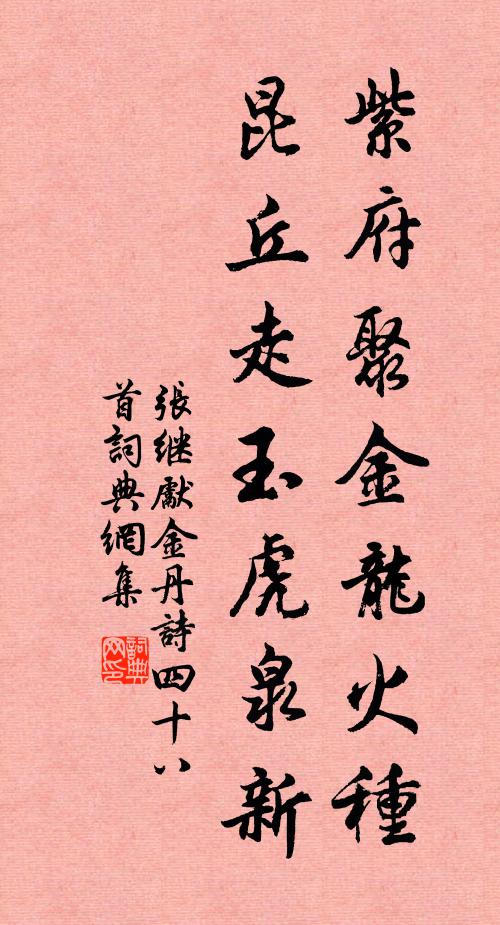 紫府聚金龍火種
昆丘走玉虎泉新
張继獻金丹詩四十八
首詞典網集
詞典
网印